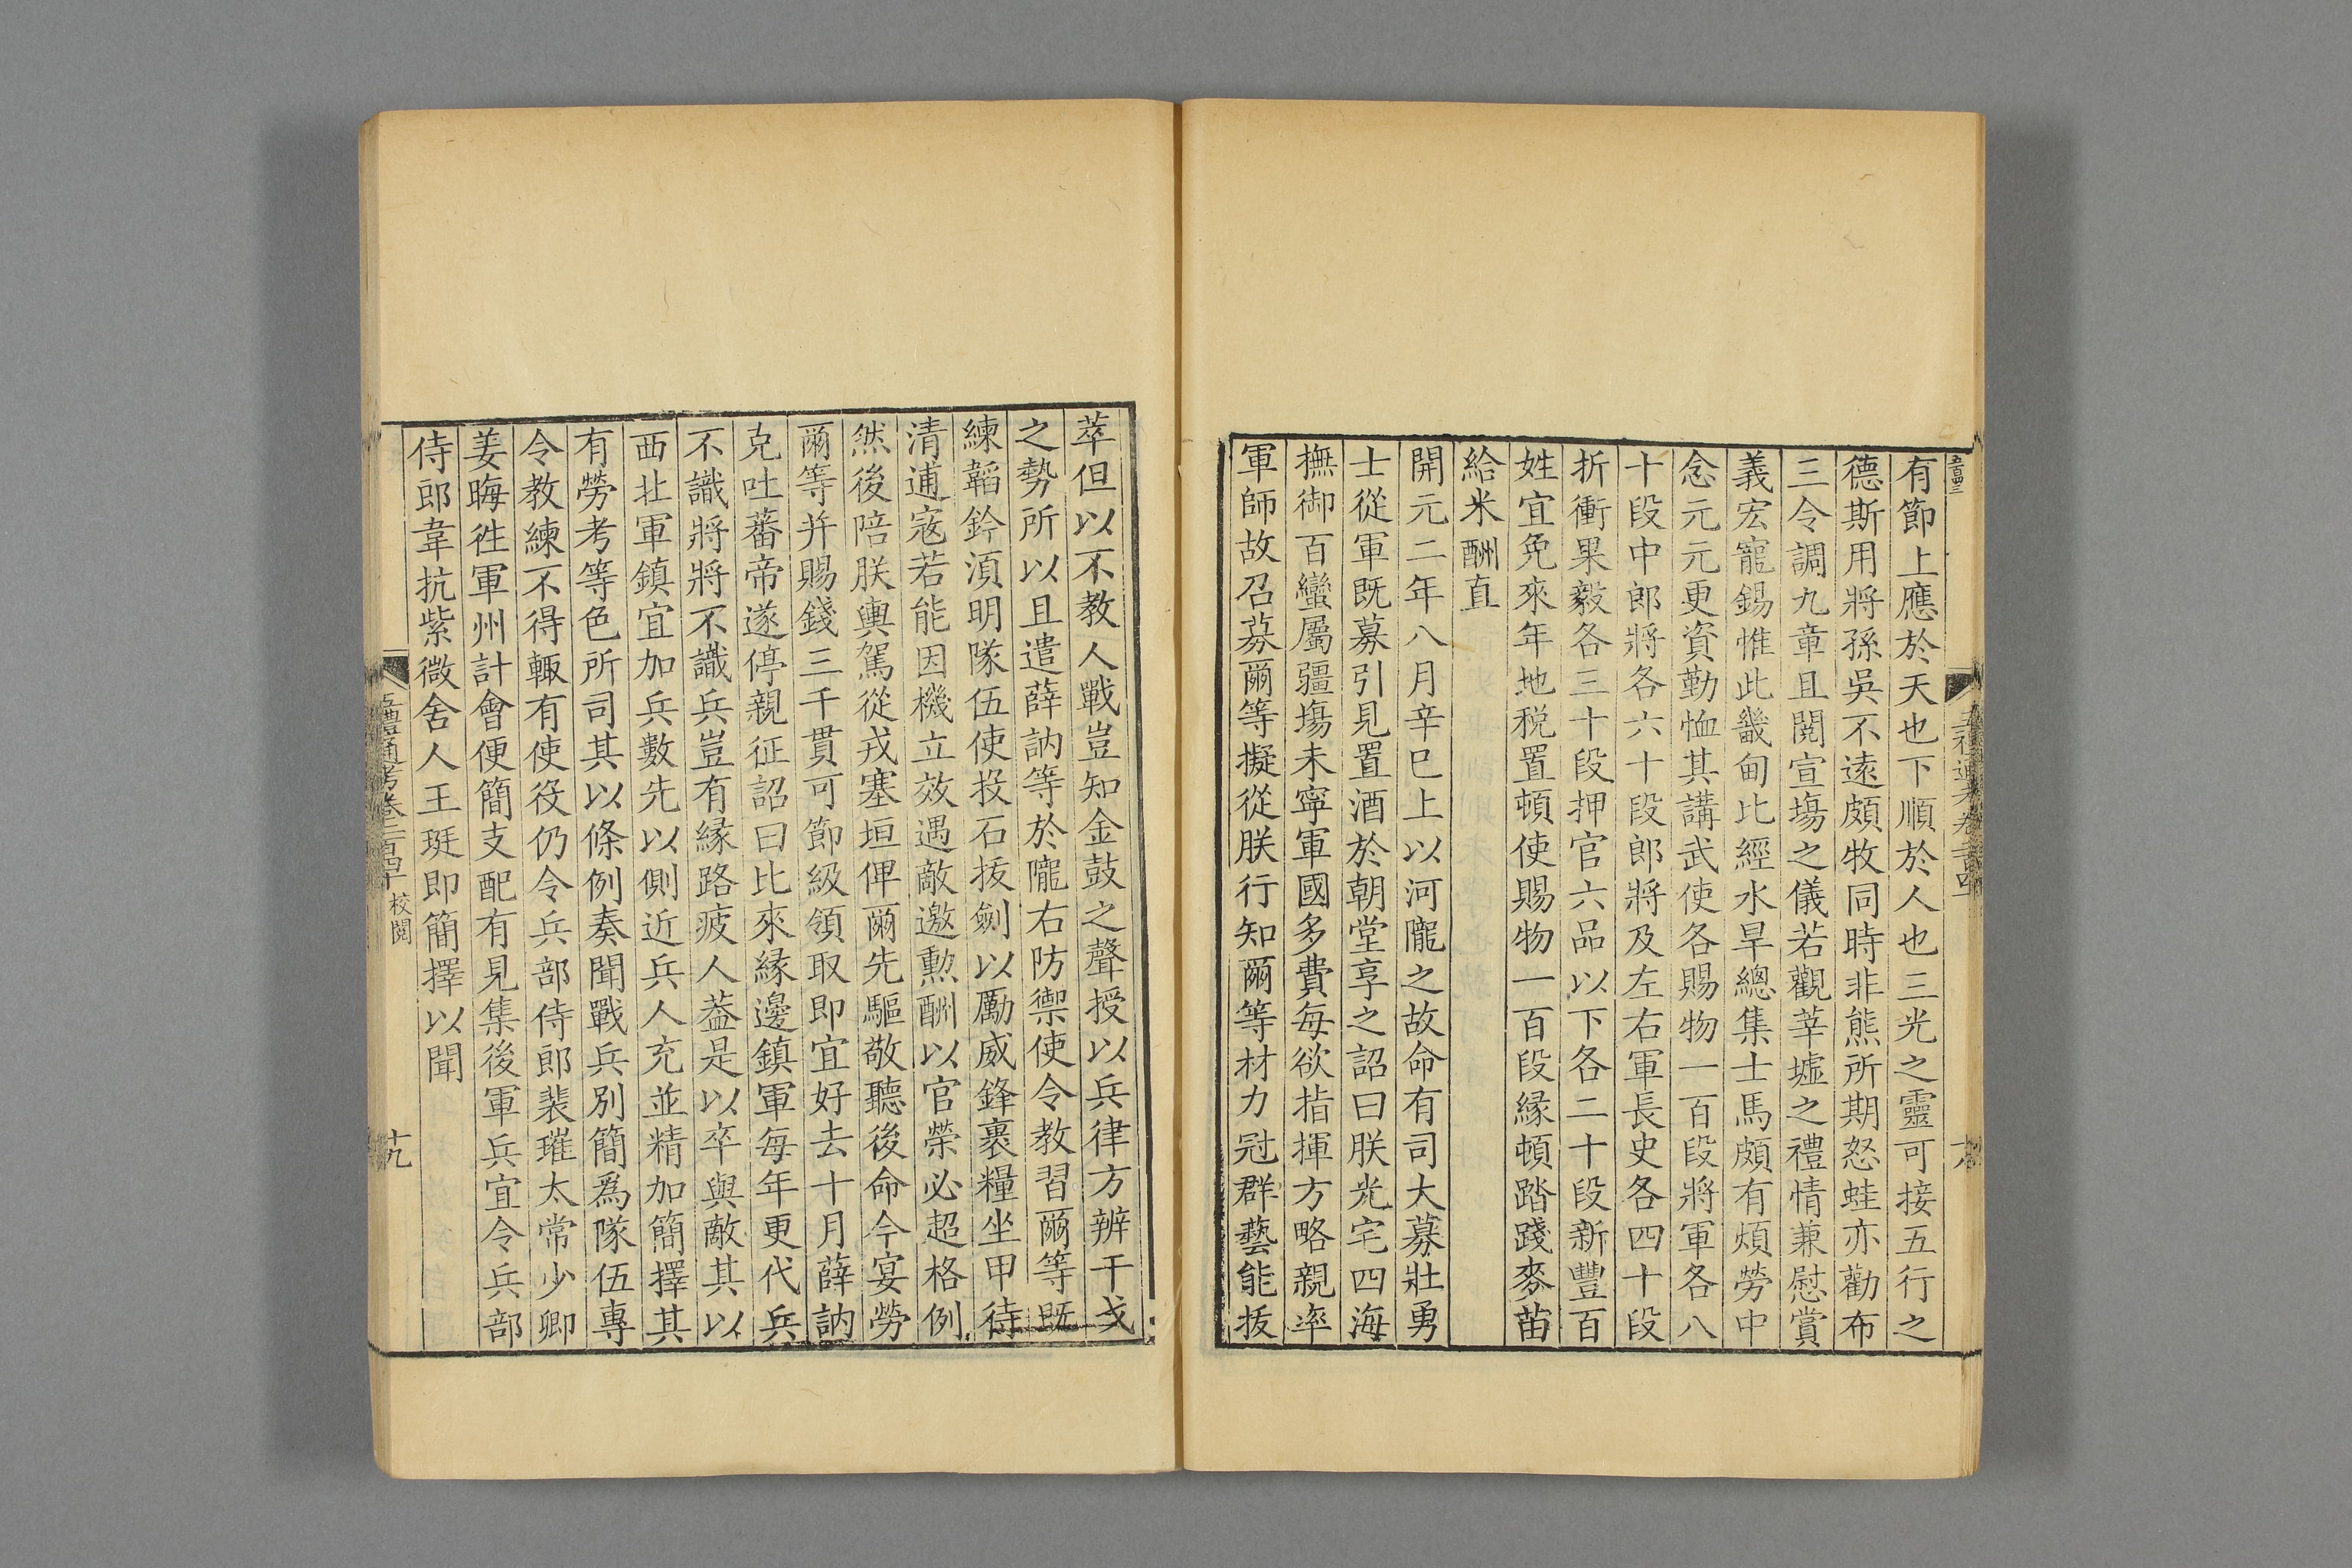 有節上應於天也下順於人也三光之靈可接五行之
德斯用將孫吳不遠頗牧同時非熊所期怒蛙亦勸布
三令調九章且閱宣場之儀若觀莘墟之禮情兼慰賞
義宏寵錫惟此畿甸比經水旱總集士馬頗有煩勞中
念元元更資勤恤其講武使各賜物一百段將軍各八
十段中郎將各六十段郎將及左右軍長史各四十段
折衝果毅各三十段押官六品以下各二十段新豐百
姓宜免來年地稅置頓使賜物一百段縁頓踏踐麥苗
給米酬直
開元二年八月辛巳上以河隴之故命有司大募壯勇
士從軍既募引見置酒於朝堂享之詔曰朕光宅四海
撫御百蠻屬疆場未寧軍國多費每欲指揮方略親率
軍師故召募爾等擬從朕行知爾等材力冠群藝能拔
萃但以不教人戰豈知金鼓之聲授以兵律方辨干戈
之勢所以且遣薛訥等於隴右防禦使令教習爾等既
練韜鈐湏明隊伍使投石拔劍以勵威鋒裹糧坐甲待
清逋寇若能因機立效遇敵邀勲酬以官榮必超格例
然後陪朕輿駕從戎塞垣俾爾先驅敬聽後命今宴勞
爾等并賜錢三千貫可節級領取即宜好去十月薛訥
克吐蕃帝遂停親征詔曰比來縁邊鎮軍每年更代兵
不識將將不識兵豈有縁路疲人葢是以卒與敵其以
西北軍鎮宜加兵數先以側近兵人充並精加簡擇其
有勞考等色所司其以條例奏聞戰兵別簡爲隊伍專
令教練不得輙有使役仍令兵部侍郎裴璀太常少卿
姜晦徃軍州計會便簡支配有見集後軍兵宜令兵部
侍郎韋抗紫微舍人王珽即簡擇以聞
五禮通考卷二百四十 校閱
十九